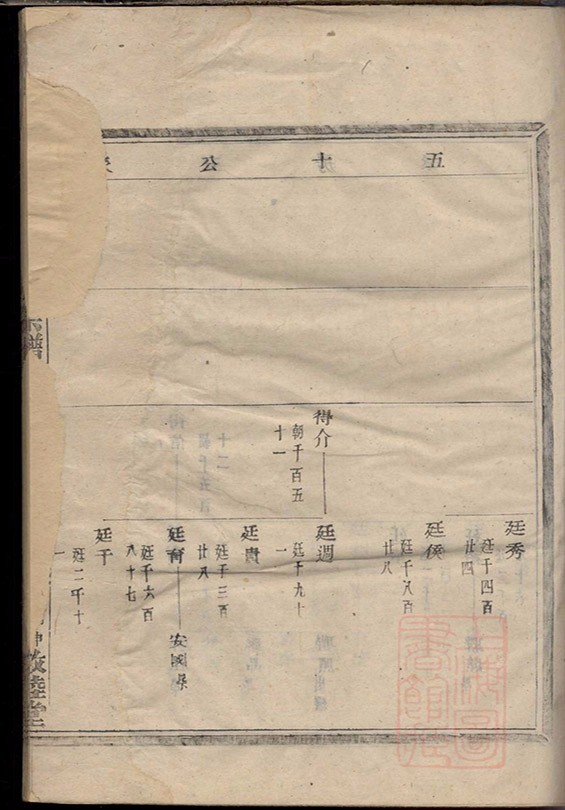 五十公
得介
朝千百五
十一
廷秀
廷千四百
廿四
廷侯
廷千八百
廿八
廷週
廷千九十
一
廷貴
廷千三百
廿八
廷育
廷千六百
八十七
安國
廷干
廷二千十
一
譜
敦睦堂